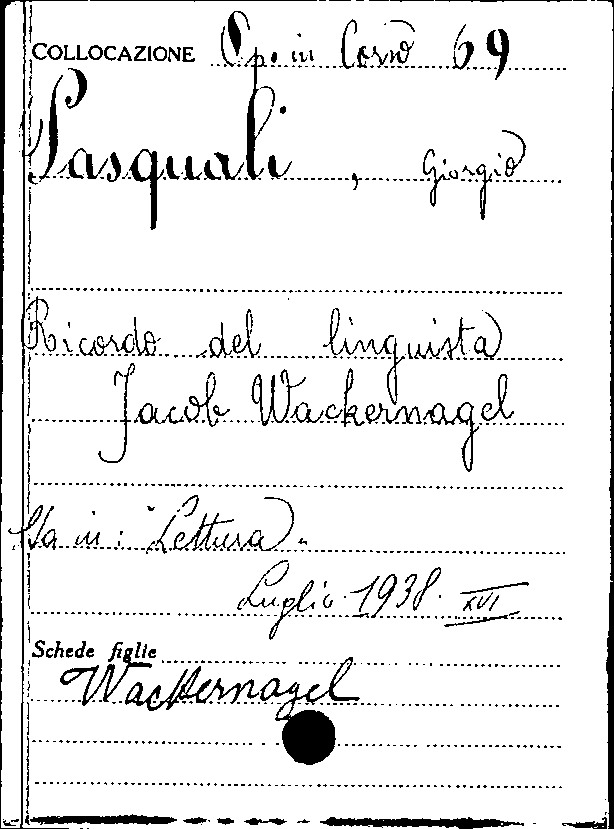 COLLOCAZIONE Op. in Corso 69
Pasquali, Giorgio
Ricordo del linguista
Jacob Wackernagel
Sta in: "Lettura".
Luglio 1938. XVI
Schede figlie
Wackernagel